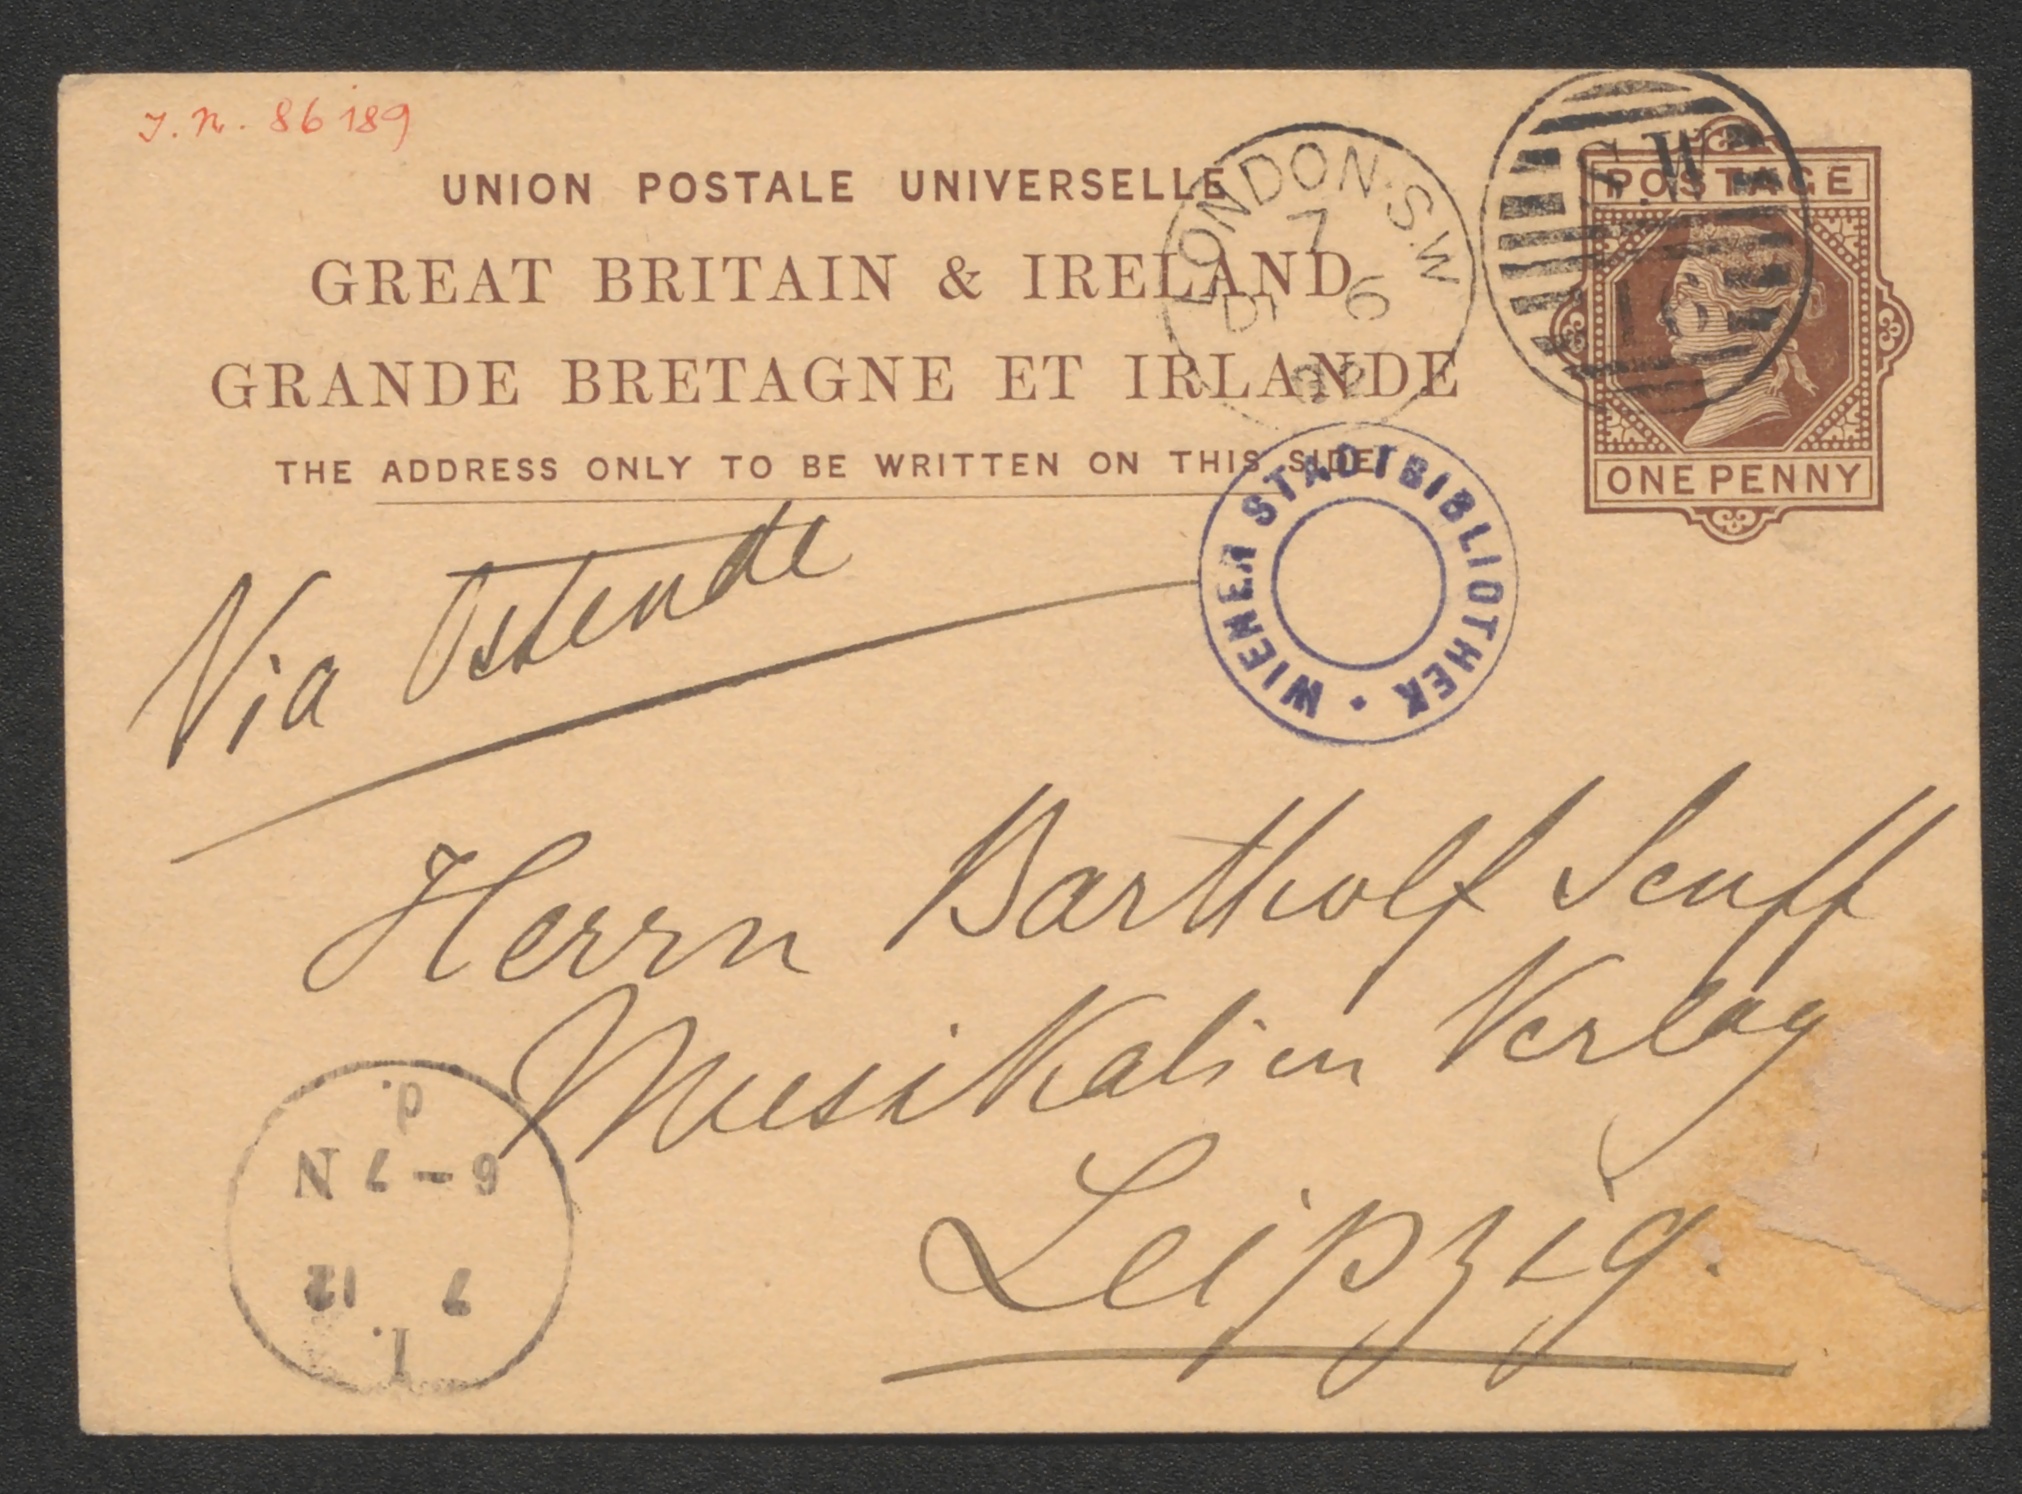 J. N. 86189
UNION POSTALE UNIVERSELLE
GREAT BRITAIN & IRELAND
GRANDE BRETAGNE ET IRLANDE
THE ADDRESS ONLY TO BE WRITTEN ON THIS SIDE
LONDON. S.W
7
DE 6
92
S.W
16
POSTAGE
ONE PENNY
WIENER STADTBIBLIOTHEK
Via Ostende
Herrn Bartholf Senff
Musikalien Verlag
Leipzig.
1.
7 12
6-7 N
d.